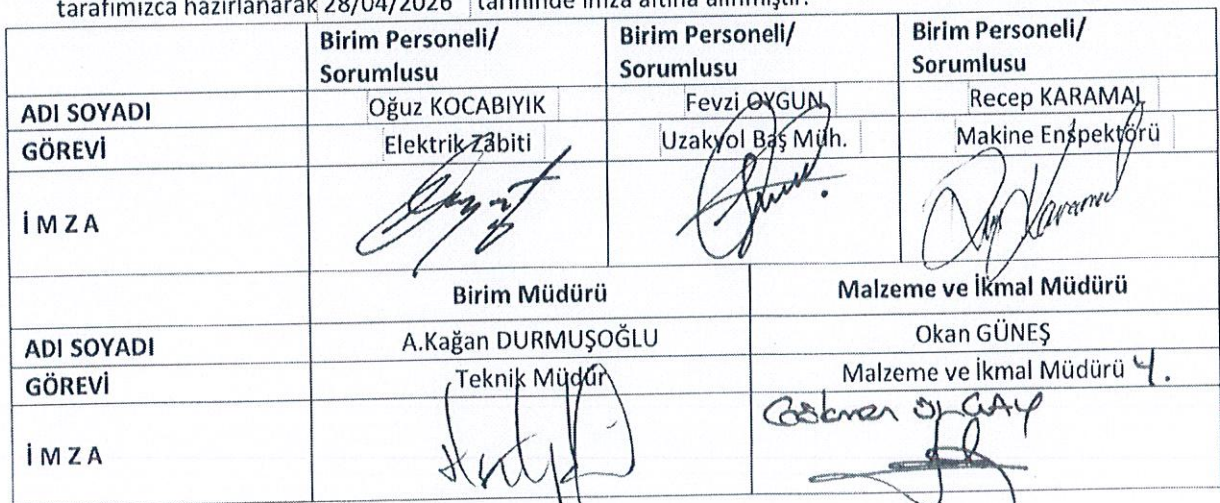 tarafımızca hazırlanarak 28/04/2026 tarihinde imza altına alınmıştır.
Birim Personeli/ Birim Personeli/ Birim Personeli/
Sorumlusu Sorumlusu Sorumlusu
ADI SOYADI Oğuz KOCABIYIK Fevzi OYGUN Recep KARAMAL
GÖREVİ Elektrik Zabiti Uzakyol Baş Müh. Makine Enspektörü
İ M Z A
Birim Müdürü Malzeme ve İkmal Müdürü
ADI SOYADI A.Kağan DURMUŞOĞLU Okan GÜNEŞ
GÖREVİ Teknik Müdür Malzeme ve İkmal Müdürü
İ M Z A